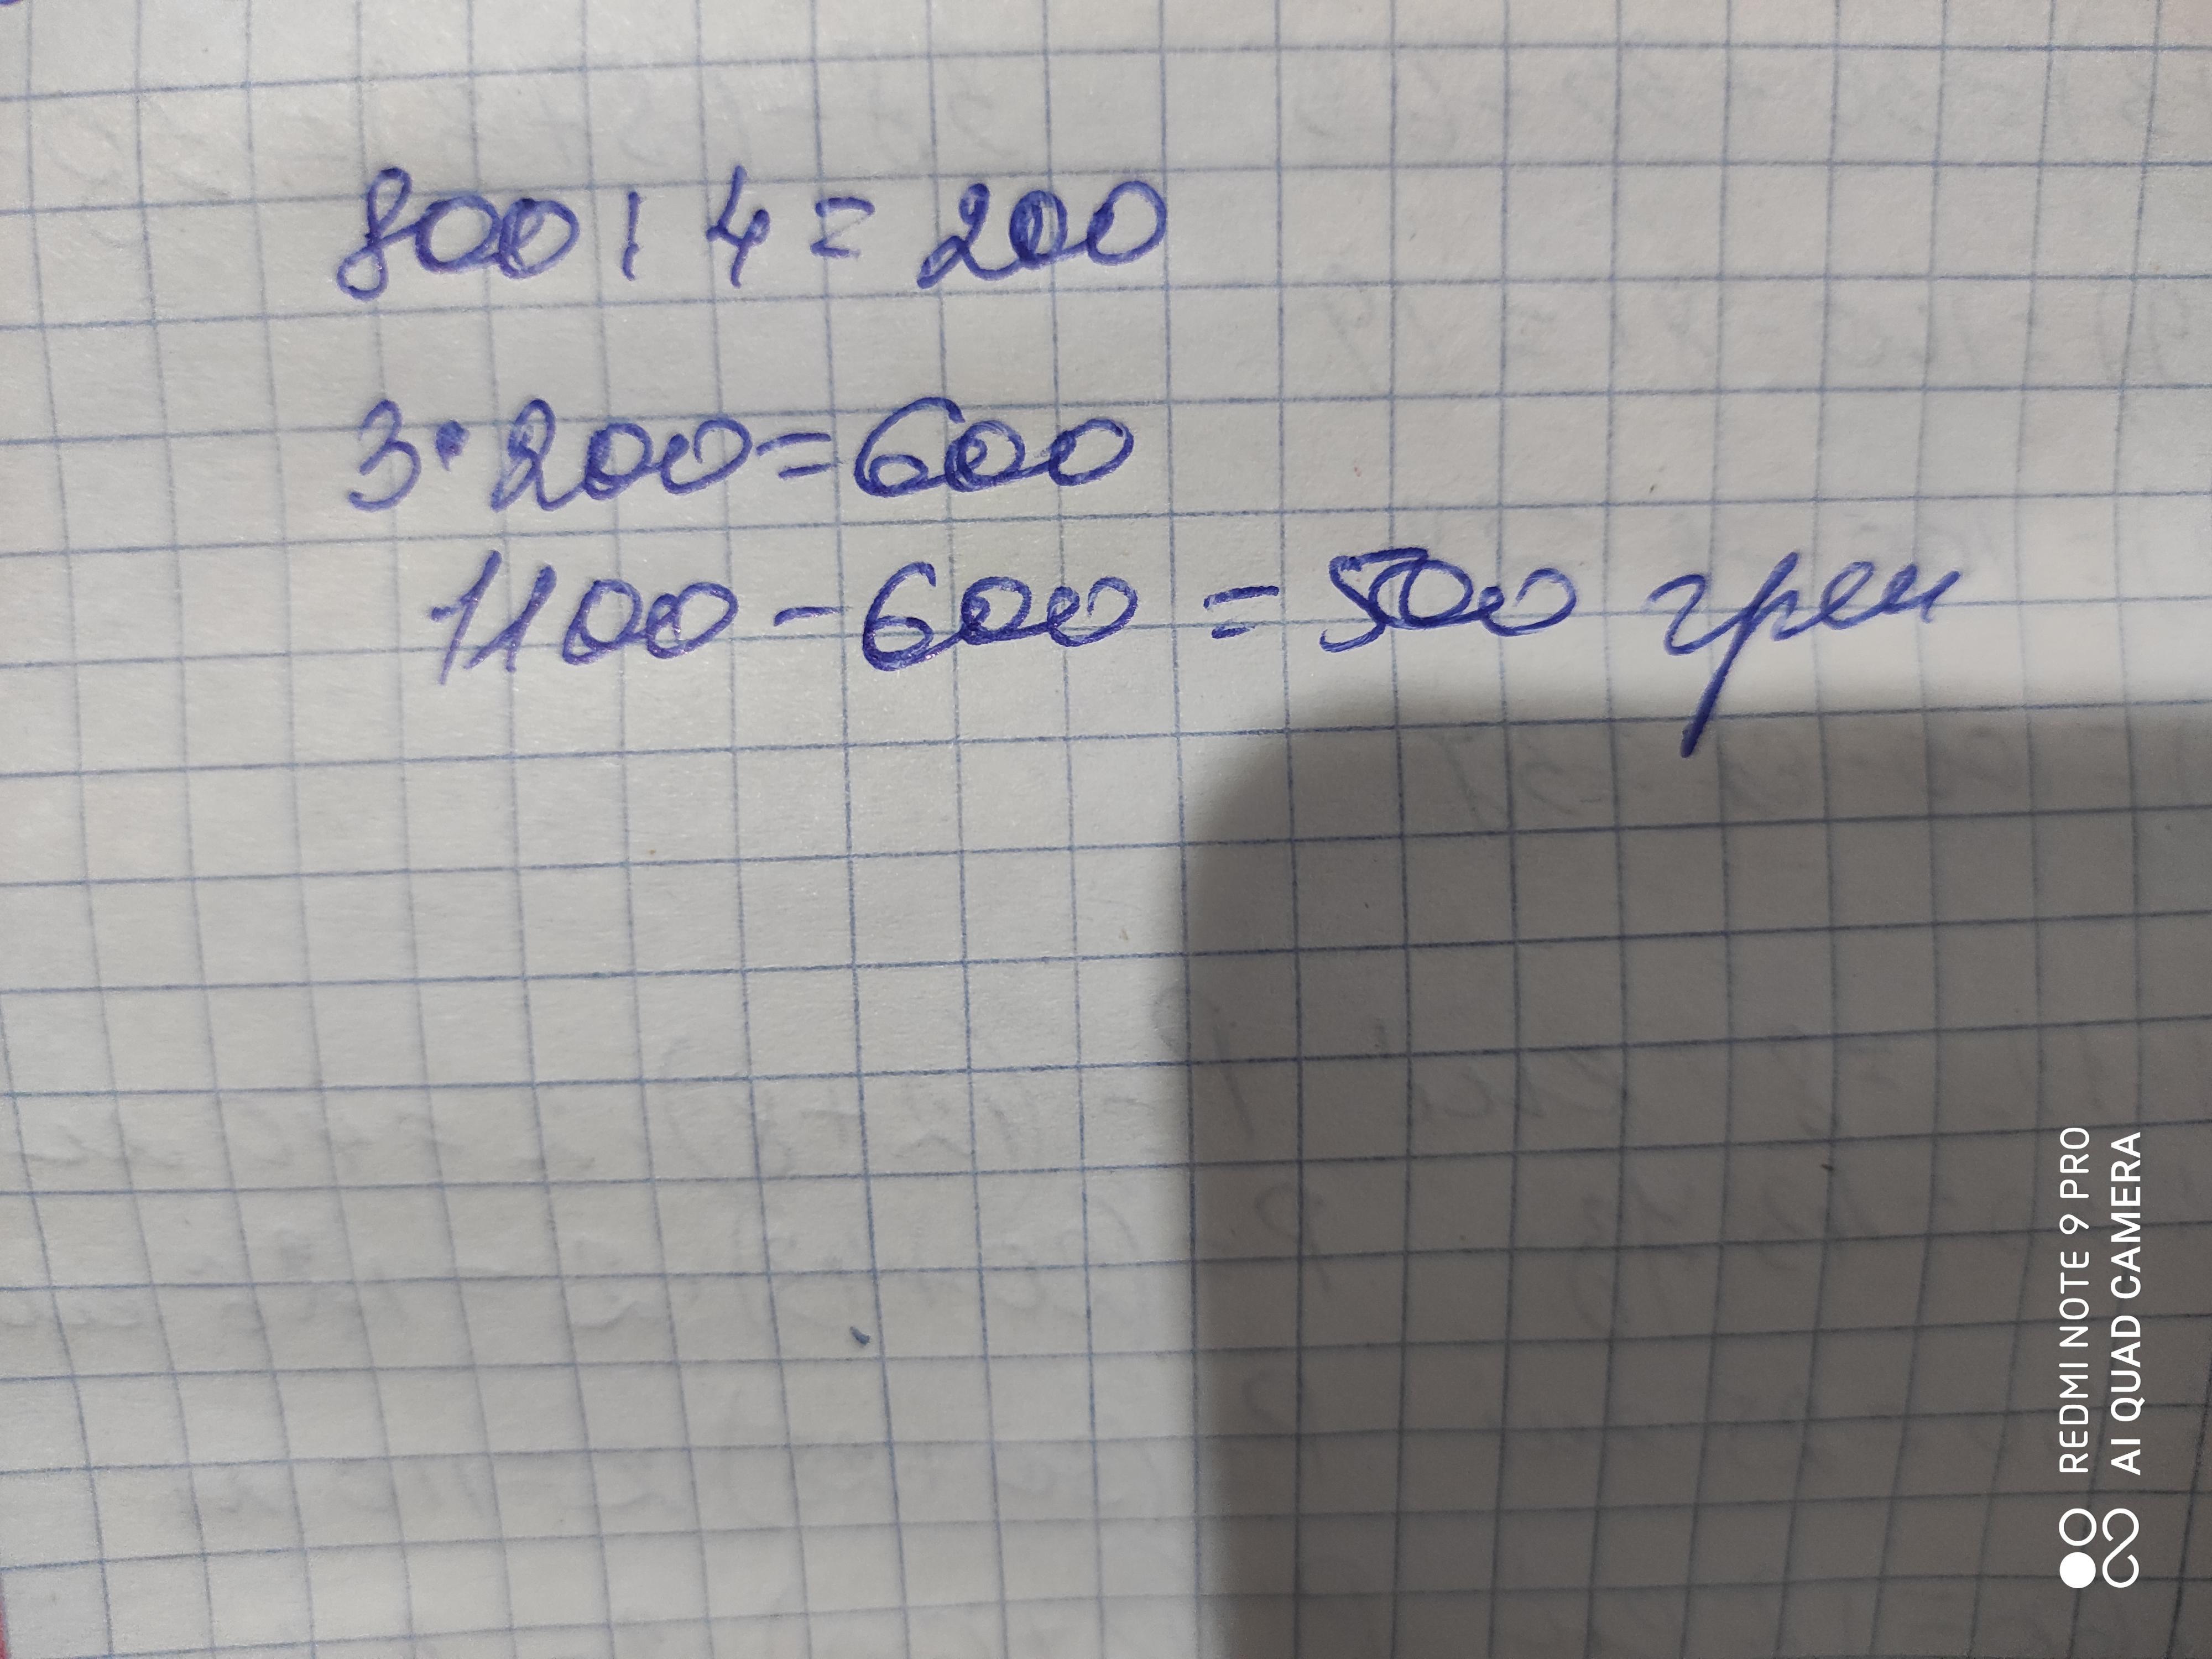 800 : 4 = 200
3 • 200 = 600
1100 - 600 = 500 грн
REDMI NOTE 9 PRO
AI QUAD CAMERA